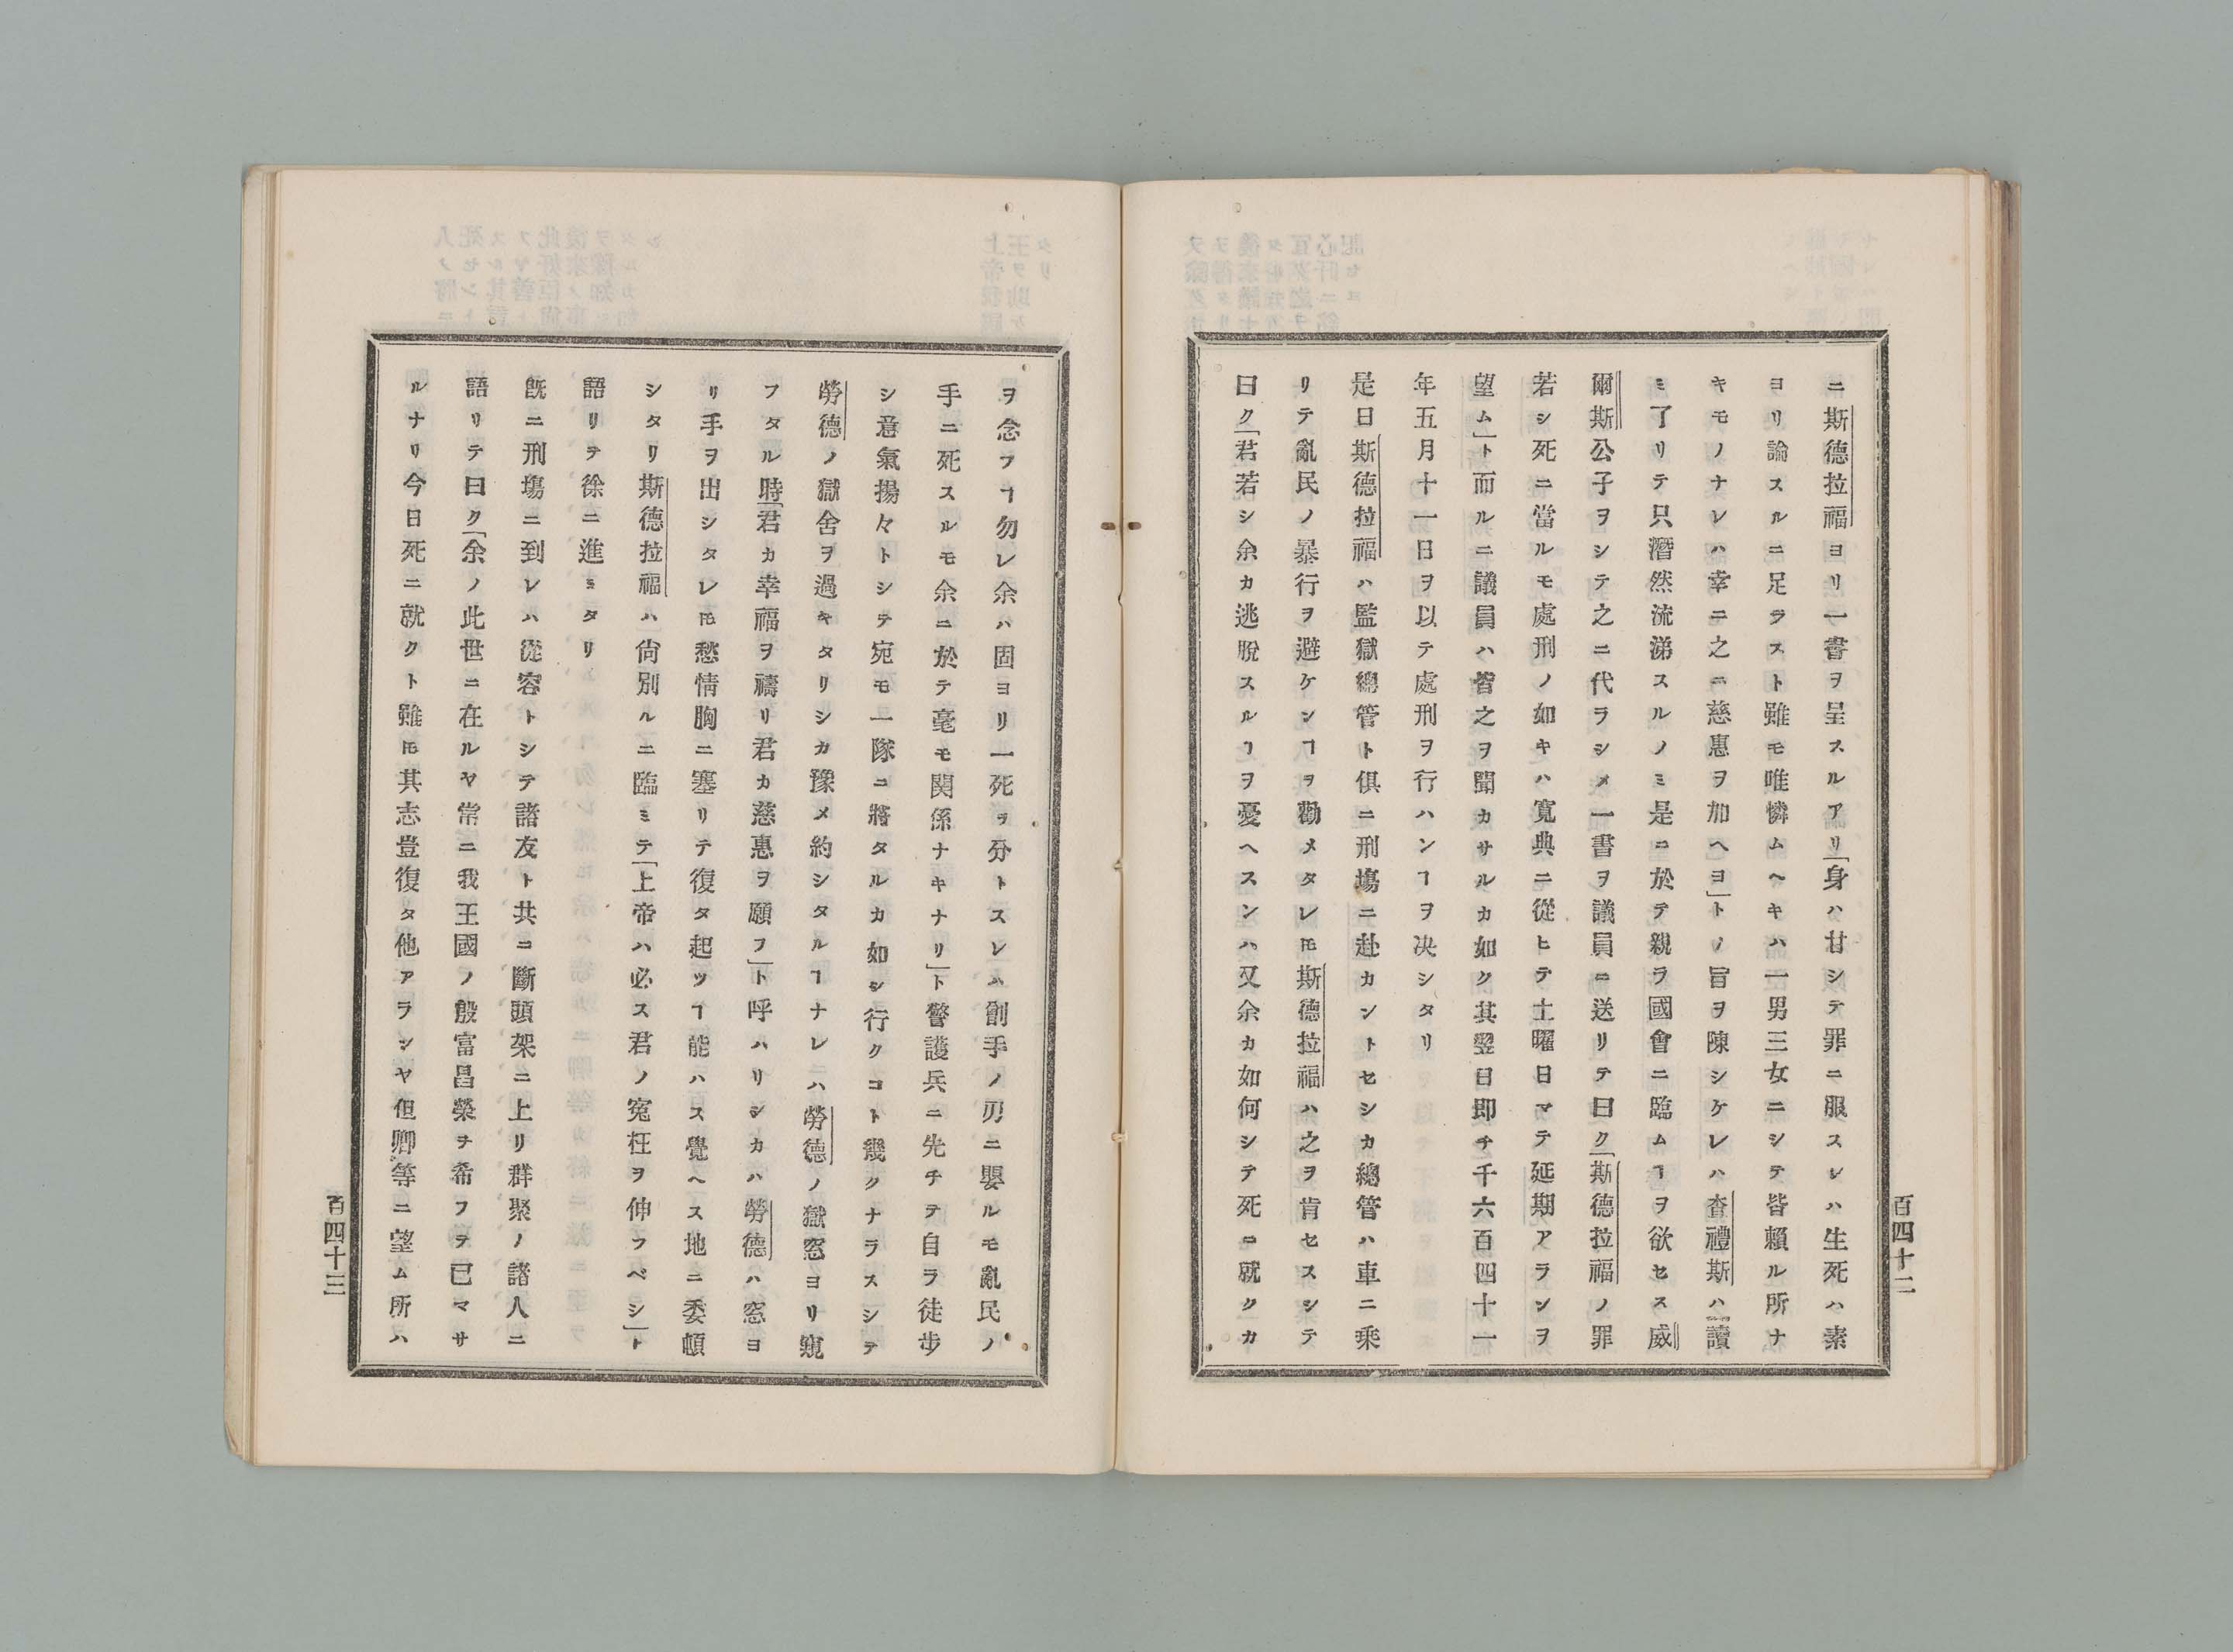 ニ斯德拉福ヨリ一書ヲ呈スルアリ「身ハ甘シテ罪ニ服スレハ生死ハ素
ヨリ論スルニ足ラスト雖モ唯憐ムヘキハ一男三女ニシテ皆頼ル所ナ
キモノナレハ幸ニ之ニ慈惠ヲ加ヘヨ」トノ旨ヲ陳シケレハ査禮斯ハ讀
ミ了リテ只潛然流涕スルノミ是ニ於テ親ラ國會ニ臨ムヿヲ欲セス威
爾斯公子ヲシテ之ニ代ラシメ一書ヲ議員ニ送リテ曰ク「斯德拉福ノ罪
若シ死ニ當ルモ處刑ノ如キハ寛典ニ從ヒテ土曜日マテ延期アランヲ
望ム」ト而ルニ議員ハ皆之ヲ聞カサルカ如ク其翌日即チ千六百四十一
年五月十一日ヲ以テ處刑ヲ行ハンヿヲ决シタリ
是日斯德拉福ハ監獄總管ト俱ニ刑塲ニ赴カントセシカ總管ハ車ニ乘
リテ亂民ノ暴行ヲ避ケンヿヲ勸メタレㇳモ斯德拉福ハ之ヲ肯セスシテ
曰ク「君若シ余カ逃脫スルヿヲ憂ヘスンハ又余カ如何シテ死ニ就クカ
百四十二
ヲ念フヿ勿レ余ハ固ヨリ一死ヲ分トスレハ劊手ノ刃ニ嬰ルモ亂民ノ
手ニ死スルモ余ニ於テ毫モ関係ナキナリ」ト警護兵ニ先チテ自ラ徒步
シ意氣揚々トシテ宛モ一隊ニ將タルカ如シ行クコト幾クナラスシテ
勞德ノ獄舍ヲ過キタリシカ豫メ約シタルヿナレハ勞德ノ獄窓ヨリ窺
フタル時「君カ幸福ヲ禱リ君カ慈惠ヲ願フ」ト呼ハリシカハ勞德ハ窓ヨ
リ手ヲ出シタレㇳモ愁情胸ニ塞リテ復タ起ツヿ能ハス覺ヘス地ニ委頓
シタリ斯德拉福ハ尙別ルニ臨ミテ「上帝ハ必ス君ノ寃枉ヲ伸フベシ」ト
語リテ徐ニ進ミタリ
既ニ刑塲ニ到レハ從容トシテ諸友ト共ニ斷頭架ニ上リ群聚ノ諸人ニ
語リテ曰ク「余ノ此世ニ在ルヤ常ニ我王國ノ殷富昌榮ヲ希フテ已マサ
ルナリ今日死ニ就クト雖ㇳモ其志豈復タ他アランヤ但卿等ニ望ム所ハ
百四十三